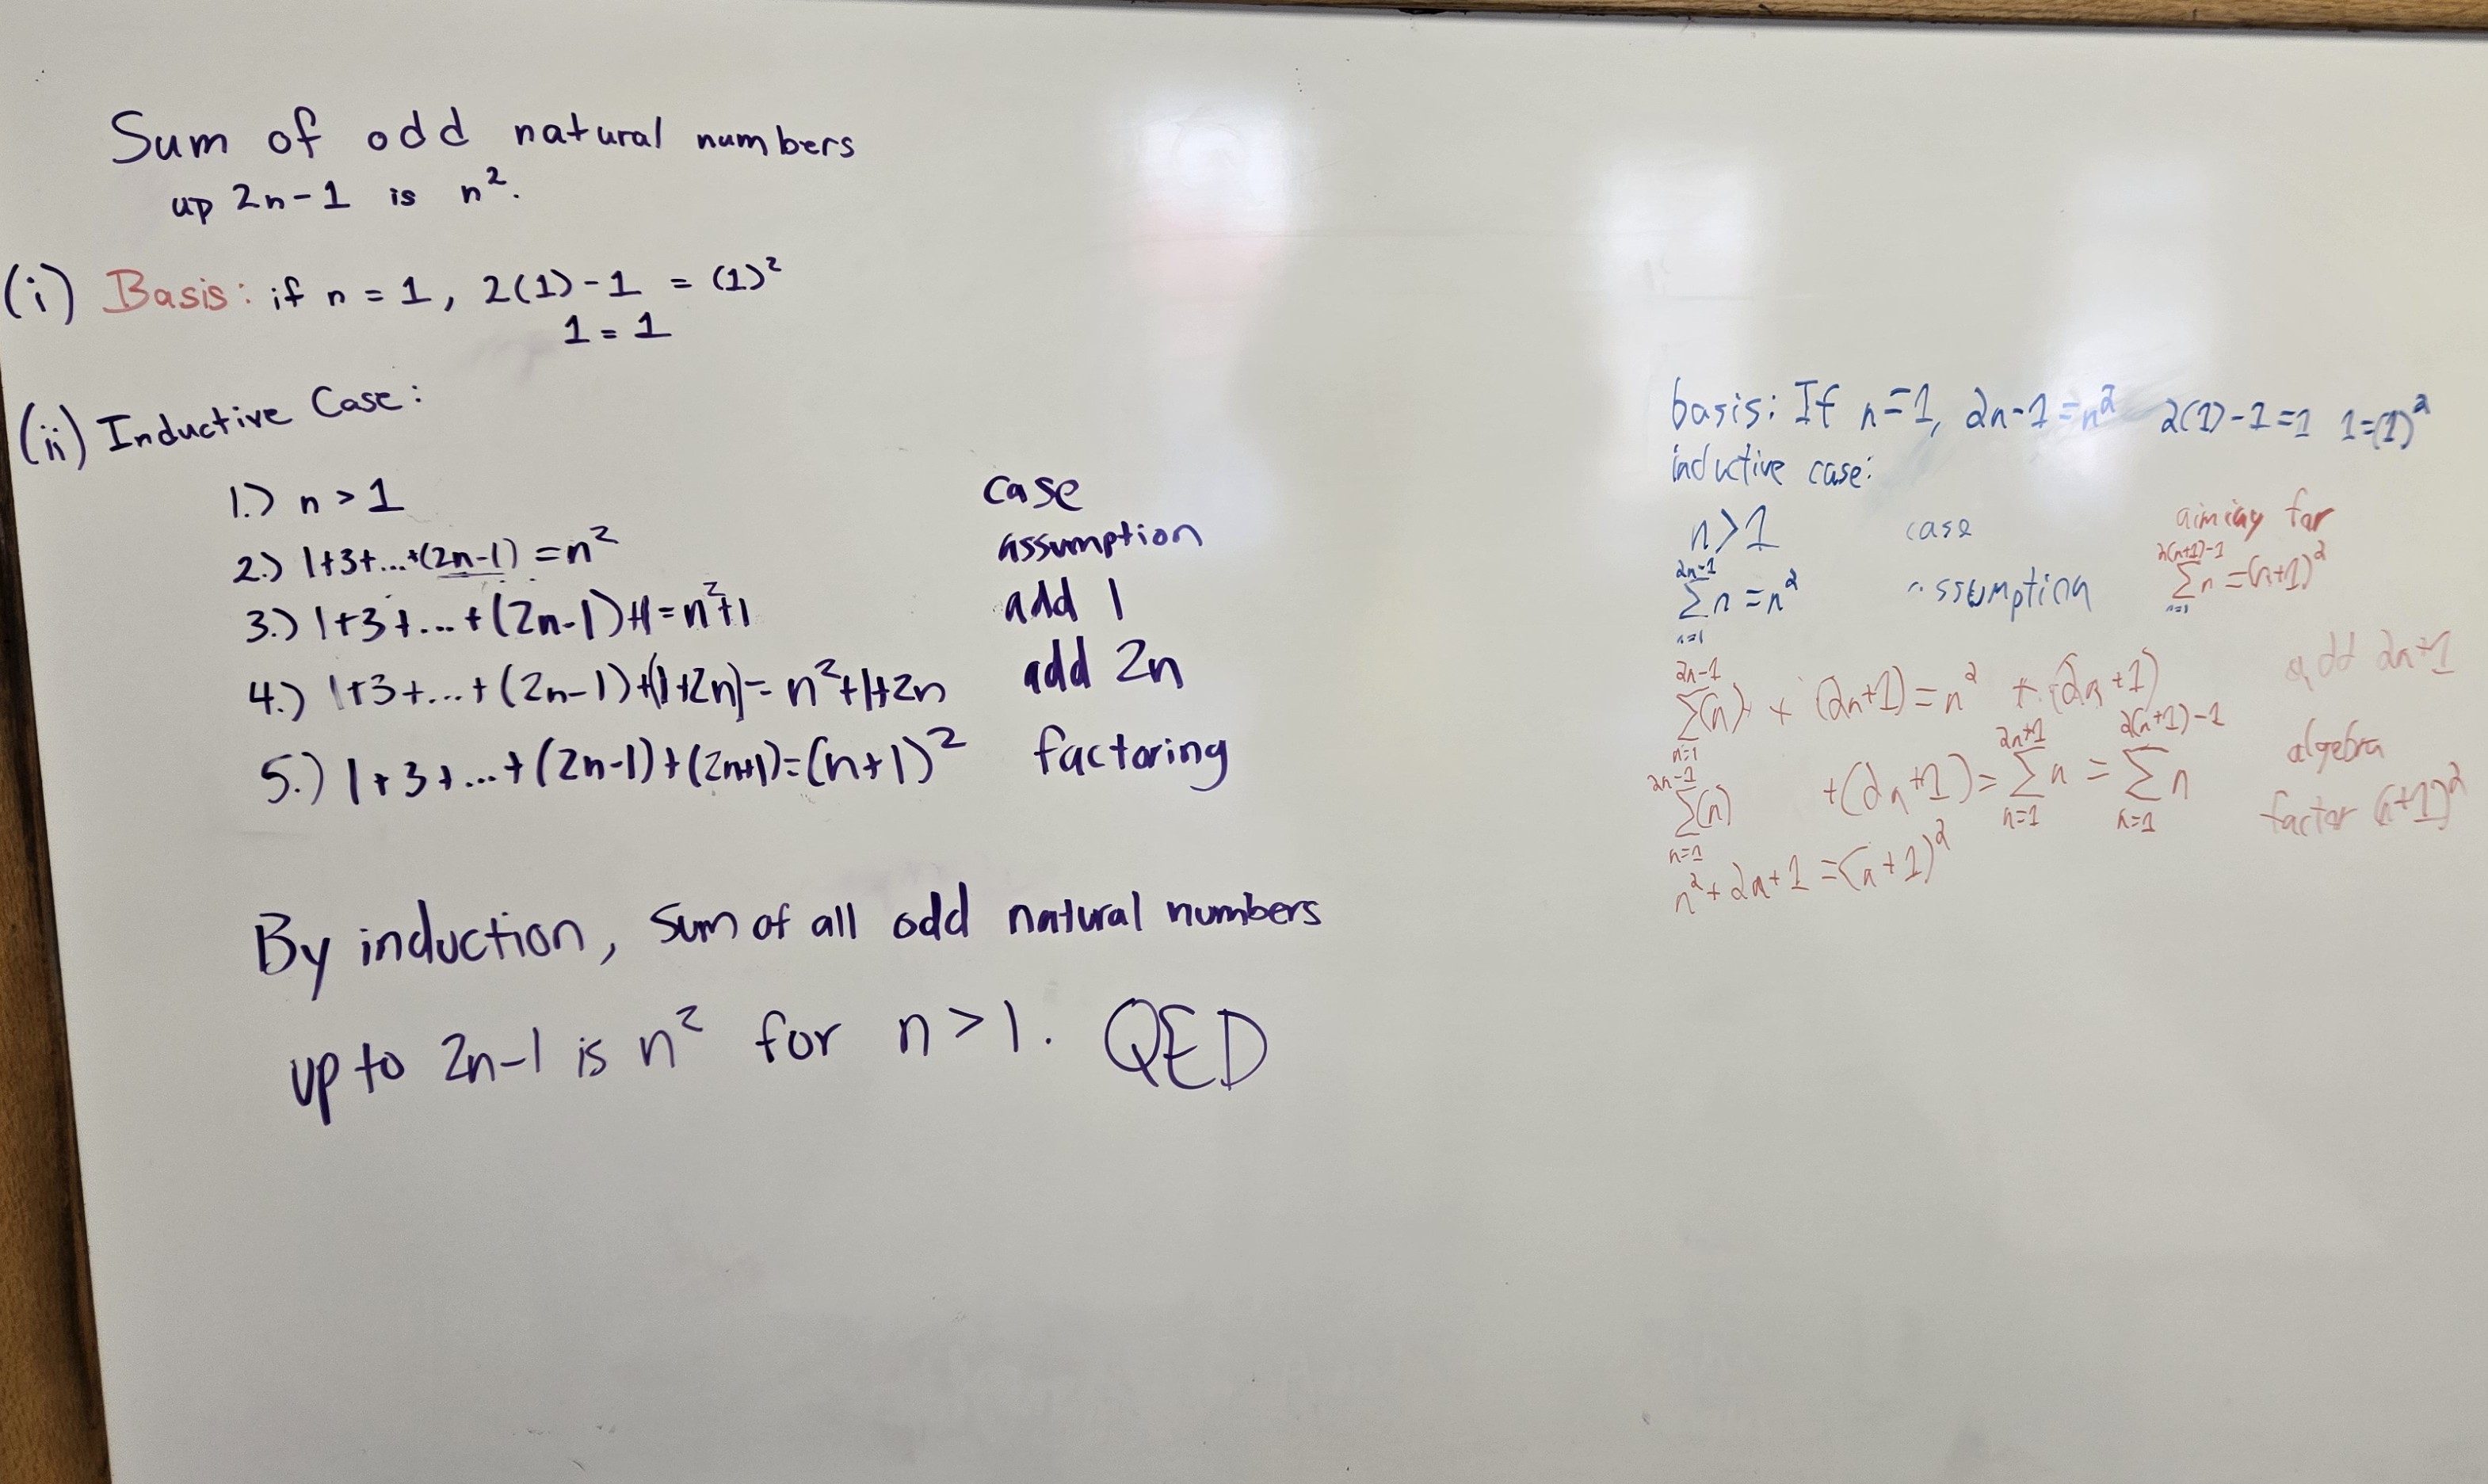 Sum of odd natural numbers
up 2n-1 is n².
(i) Basis: if n = 1, 2(1)-1 = (1)²
1 = 1
(ii) Inductive Case:
1.) n > 1 case
2.) 1+3+...+(2n-1) = n² assumption
3.) 1+3+...+(2n-1)+1 = n²+1 add 1
4.) 1+3+...+(2n-1)+(1+2n) = n²+1+2n add 2n
5.) 1+3+...+(2n-1)+(2n+1) = (n+1)² factoring
By induction, sum of all odd natural numbers
up to 2n-1 is n² for n > 1. QED
basis: If n=1, 2n-1=n² 2(1)-1=1 1=(1)²
inductive case:
n>1 case
aiming for
2n-1
∑n = n² assumption
n=1
2(n+1)-1
∑n = (n+1)²
n=1
2n-1
∑(n) + (2n+1) = n² + (2n+1) add 2n+1
n=1
2n-1 2n+1 2(n+1)-1
∑(n) +(2n+1) = ∑n = ∑n algebra
n=1 n=1 n=1
n²+2n+1 = (n+1)² factor (n+1)²